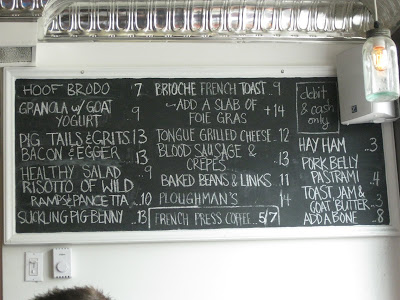 HOOF BRODO 7
GRANOLA w/ GOAT
YOGURT 9
PIG TAILS & GRITS 13
BACON & EGGER 13
HEALTHY SALAD 9
RISOTTO OF WILD
RAMPS & PANCETTA ..10
SUCKLING PIG BENNY ..13
BRIOCHE FRENCH TOAST ..9
ADD A SLAB OF
FOIE GRAS +14
TONGUE GRILLED CHEESE ..12
BLOOD SAUSAGE &
CREPES 13
BAKED BEANS & LINKS 11
PLOUGHMAN'S 14
FRENCH PRESS COFFEE ..5/7
debit
& cash
only
HAY HAM ..3
PORK BELLY
PASTRAMI 4
TOAST, JAM &
GOAT BUTTER ..3
ADD A BONE ..8